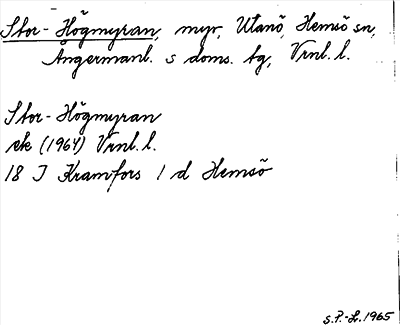 Stor-Högmyran, myr, Utanö, Hemsö sn,
Ångermanl. s doms. tg, Vrnl. l.
Stor-Högmyran
ek (1964) Vrnl. l.
18 I Kramfors 1 d Hemsö
S.P.-L. 1965